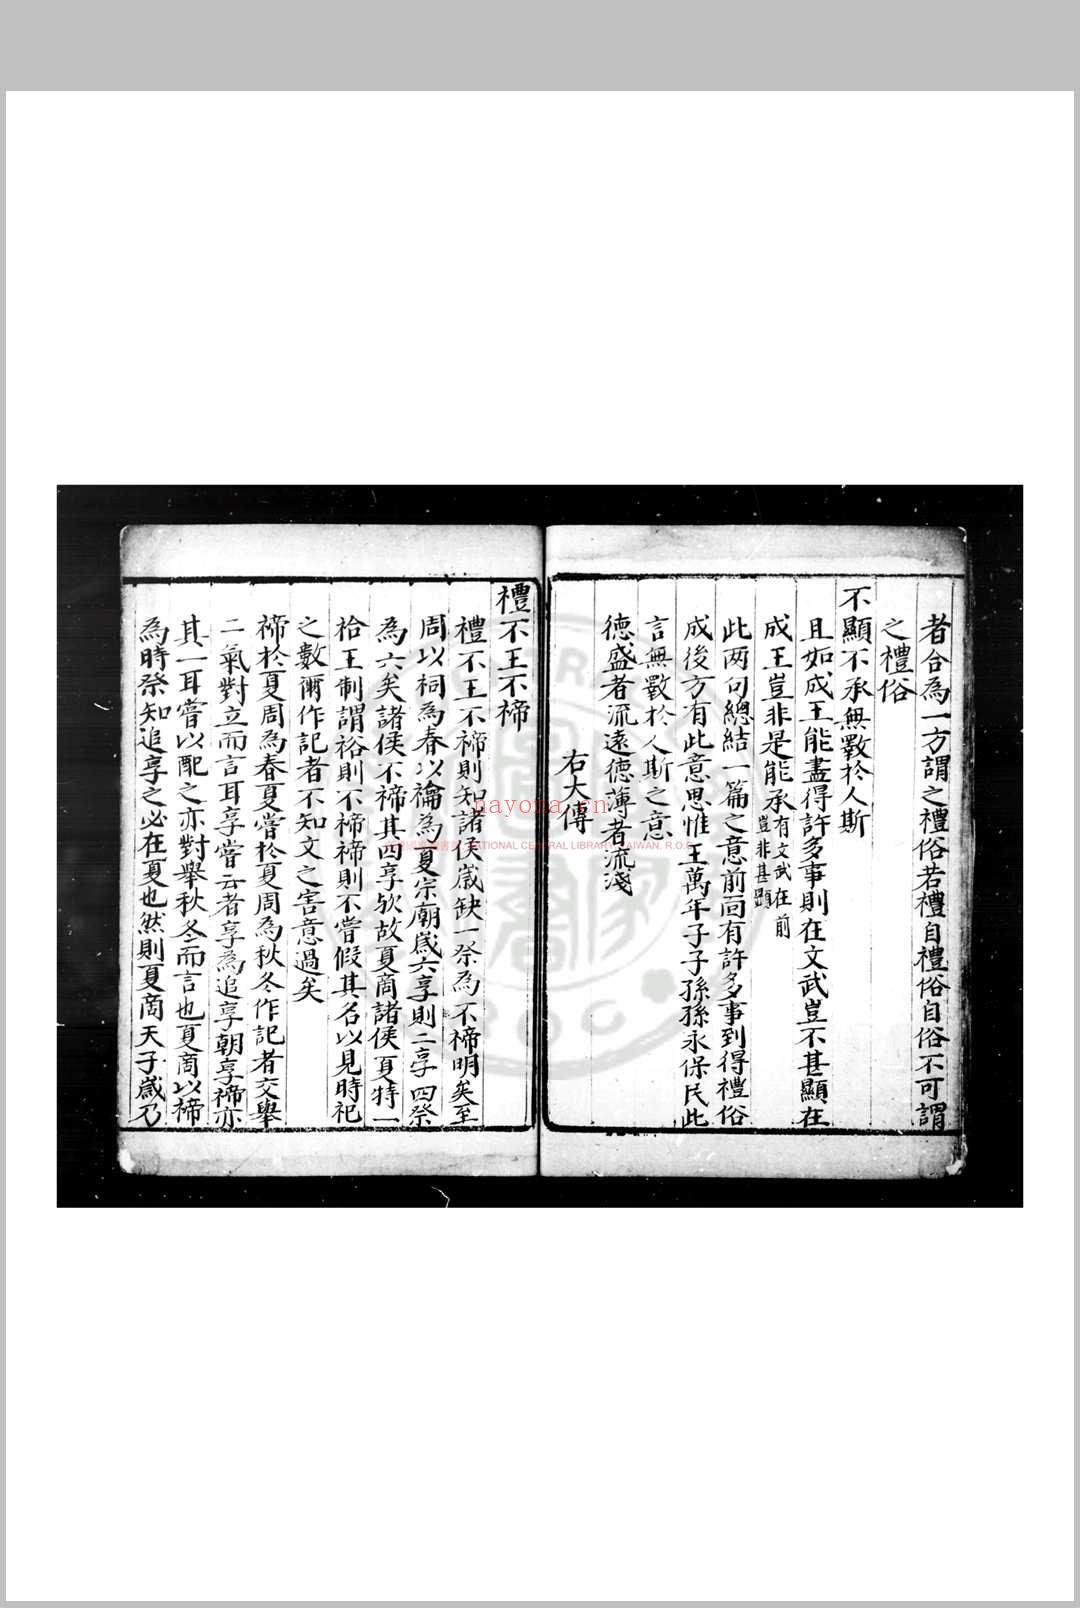 者合為一方謂之禮俗若禮自禮俗自俗不可謂
之禮俗
不顯不承無斁於人斯
且如成王能盡得許多事則在文武豈不甚顯在
成王豈非是能承有文武在前豈非甚顯
此两句緫結一篇之意前面有許多事到得禮俗
成後方有此意思惟王萬年子子孫孫永保民此
言無斁於人斯之意
徳盛者流遠徳薄者流淺
右大傳
禮不王不禘
禮不王不禘則知諸侯嵗缺一祭為不禘明矣至
周以祠為春以禴為夏宗廟嵗六享則二享四祭
為六矣諸侯不禘其四享欤故夏商諸侯夏特一
祫王制謂祫則不禘禘則不嘗假其名以見時祀
之數爾作記者不知文之害意過矣
禘於夏周為春夏嘗於夏周為秋冬作記者交舉
二氣對立而言耳享嘗云者享為追享朝享禘亦
其一耳嘗以配之亦對舉秋冬而言也夏商以禘
為時祭知追享之必在夏也然則夏商天子嵗乃
nayona.cn
NATIONAL CENTRAL LIBRARY, TAIWAN, R.O.C